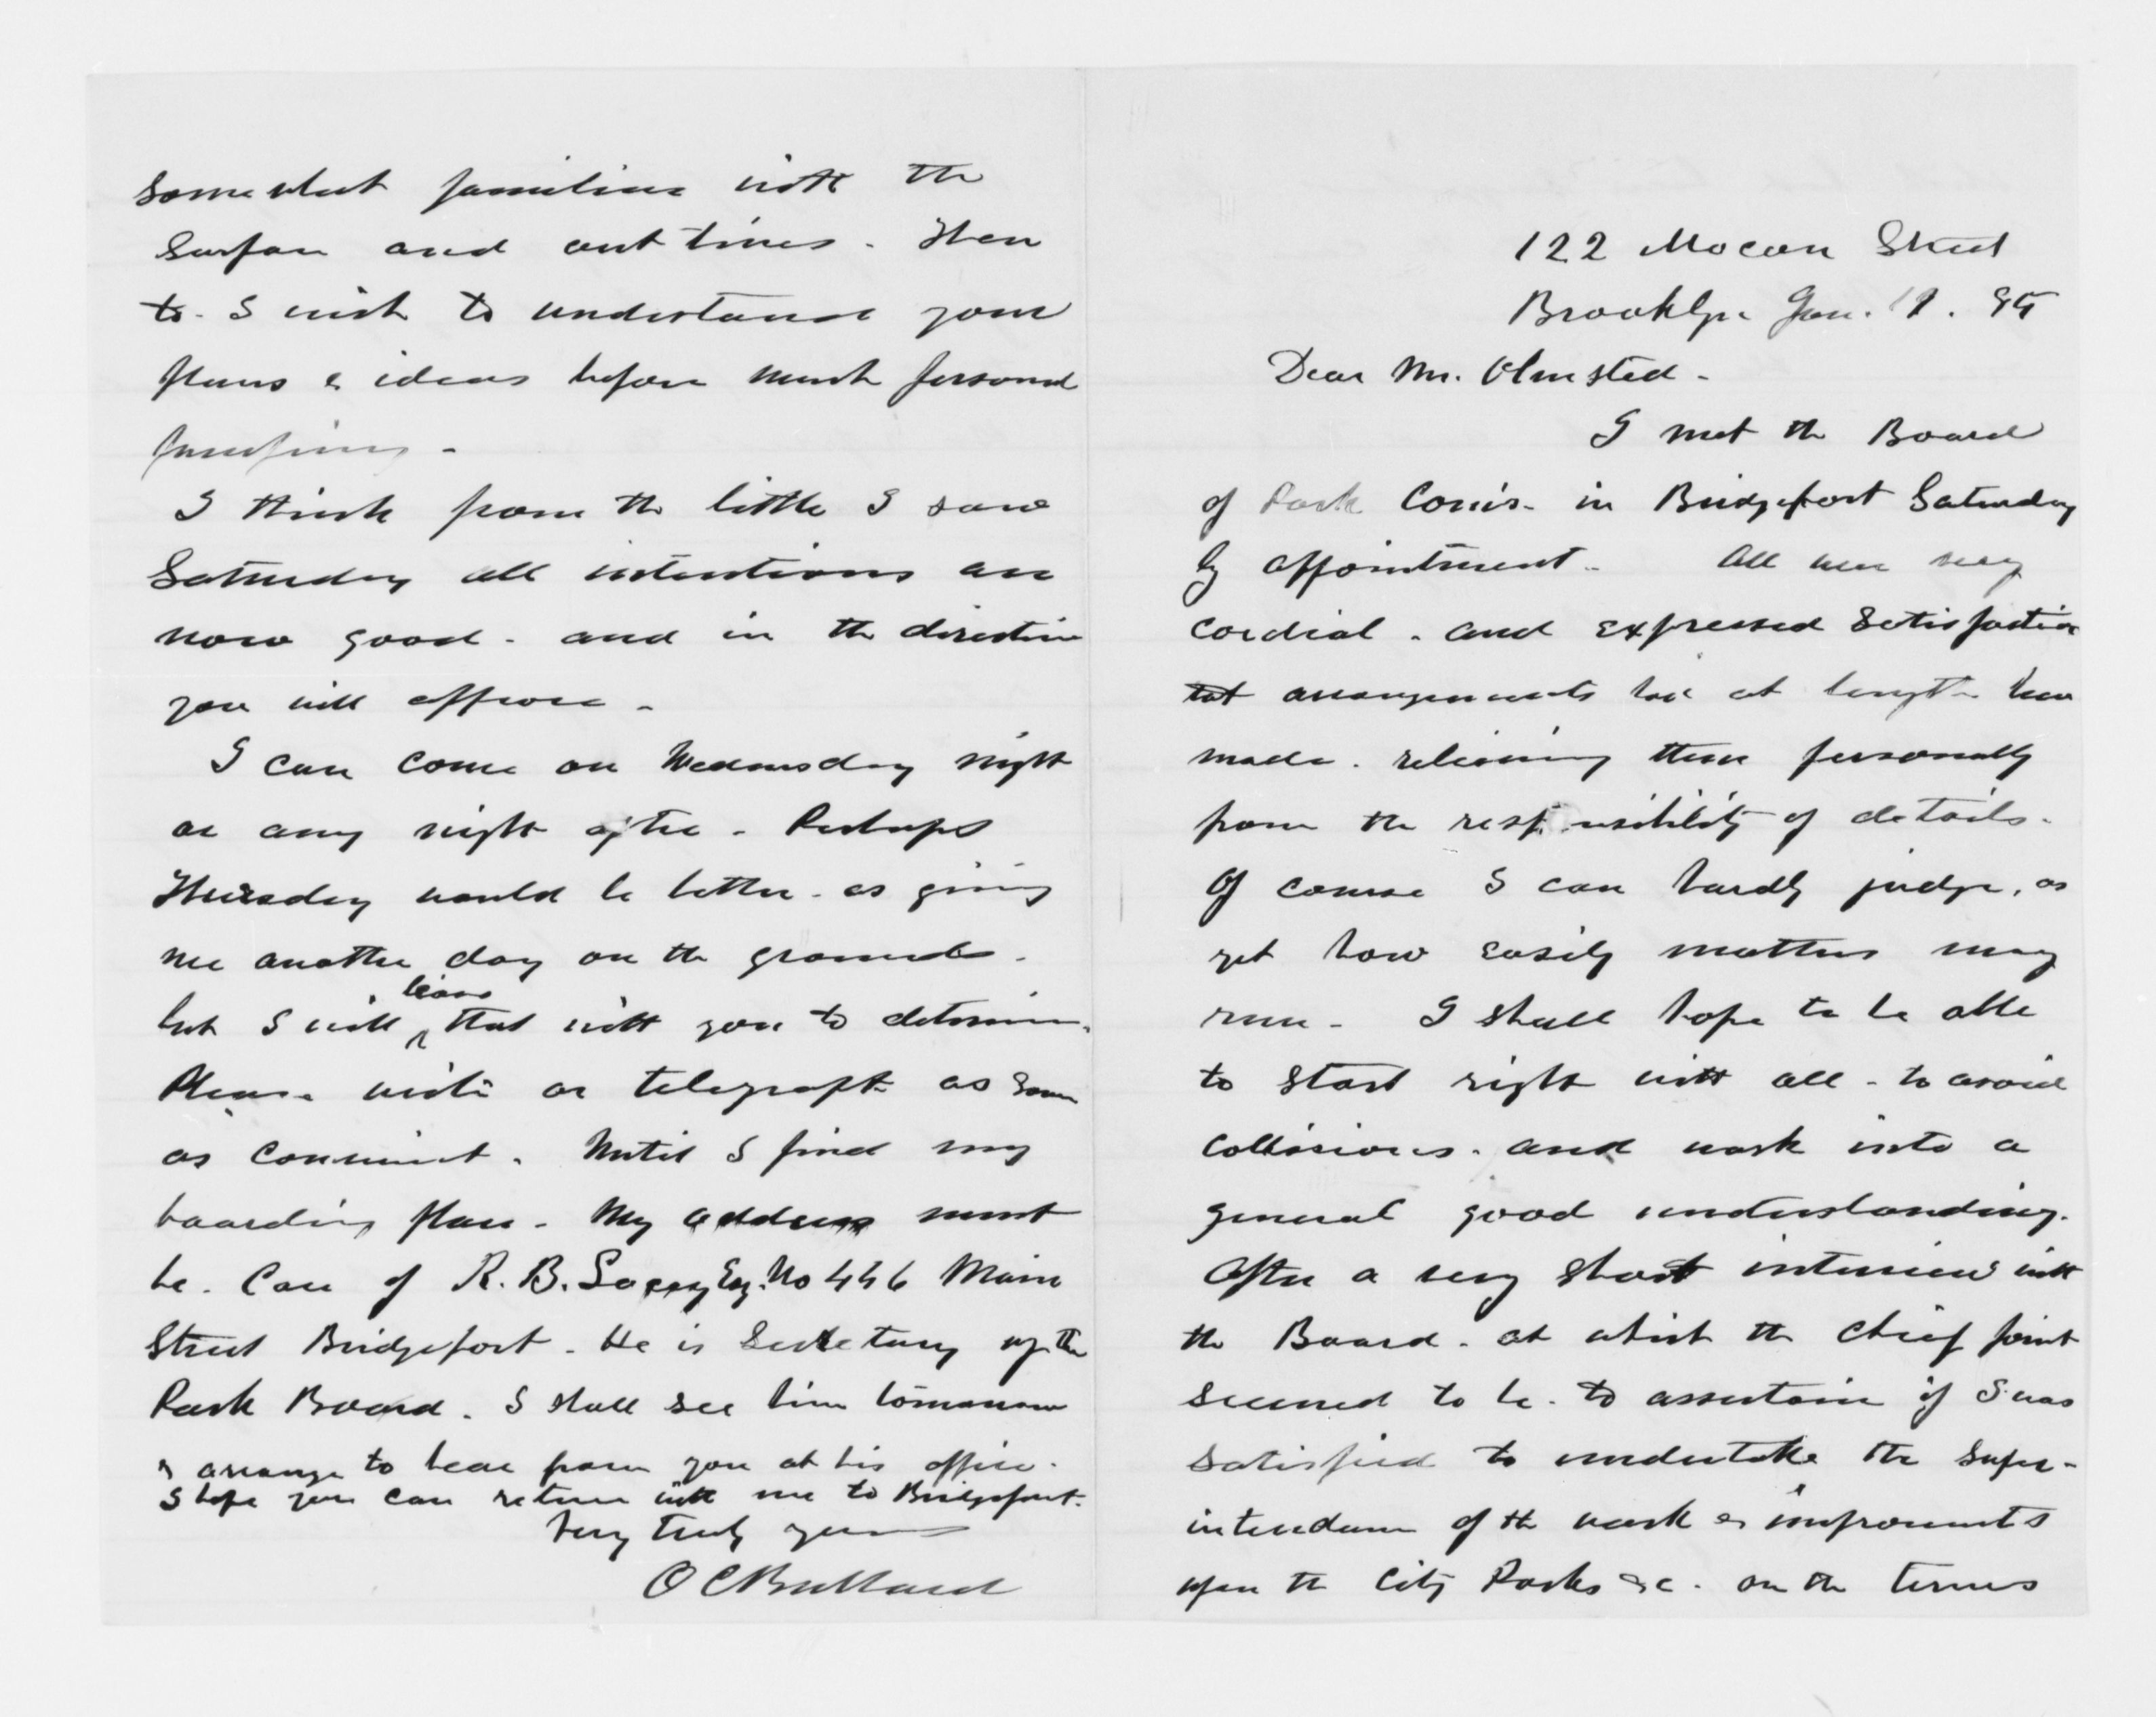 122 Macon Street
Brooklyn Jan. 85
Dear Mr. Olmsted -
I met the Board
of Park Comis. in Bridgeport Saturday
by appointment. All were very
cordial. and expressed satisfaction
that arrangements had at length been
made. relieving them personally
from the responsibility of details.
Of course I can hardly judge, as
yet how easily matters may
run - I shall hope to be able
to start right with all - to avoid
collisions. and work into a
general good understanding.
After a very short interview with
the Board. at which the chief point
seemed to be. to assertain if I was
satisfied to undertake the super-
intendence of the work & improvements
upon the City Parks &c. on the terms
somewhat familiar with the
surface and outlines. Then
to. I wish to understand your
plans & ideas before much personal
I think from the little I saw
Saturday all intentions are
now good. and in the direction
you will approve.
I can come on Wednesday night
or any night after. Perhaps
Thursday would be better. as giving
me another day on the grounds.
but I will leave that with you to determine.
Please write or telegraph as soon
as convenient. Until I find my
boarding place. My address must
be. Care of R. B. Lacey Esq. No 446 Main
Street Bridgeport. He is Secretary of the
Park Board. I shall see him tomorrow
& arrange to hear from you at his office.
I hope you can return with me to Bridgeport.
Very truly yours
O C Bullard